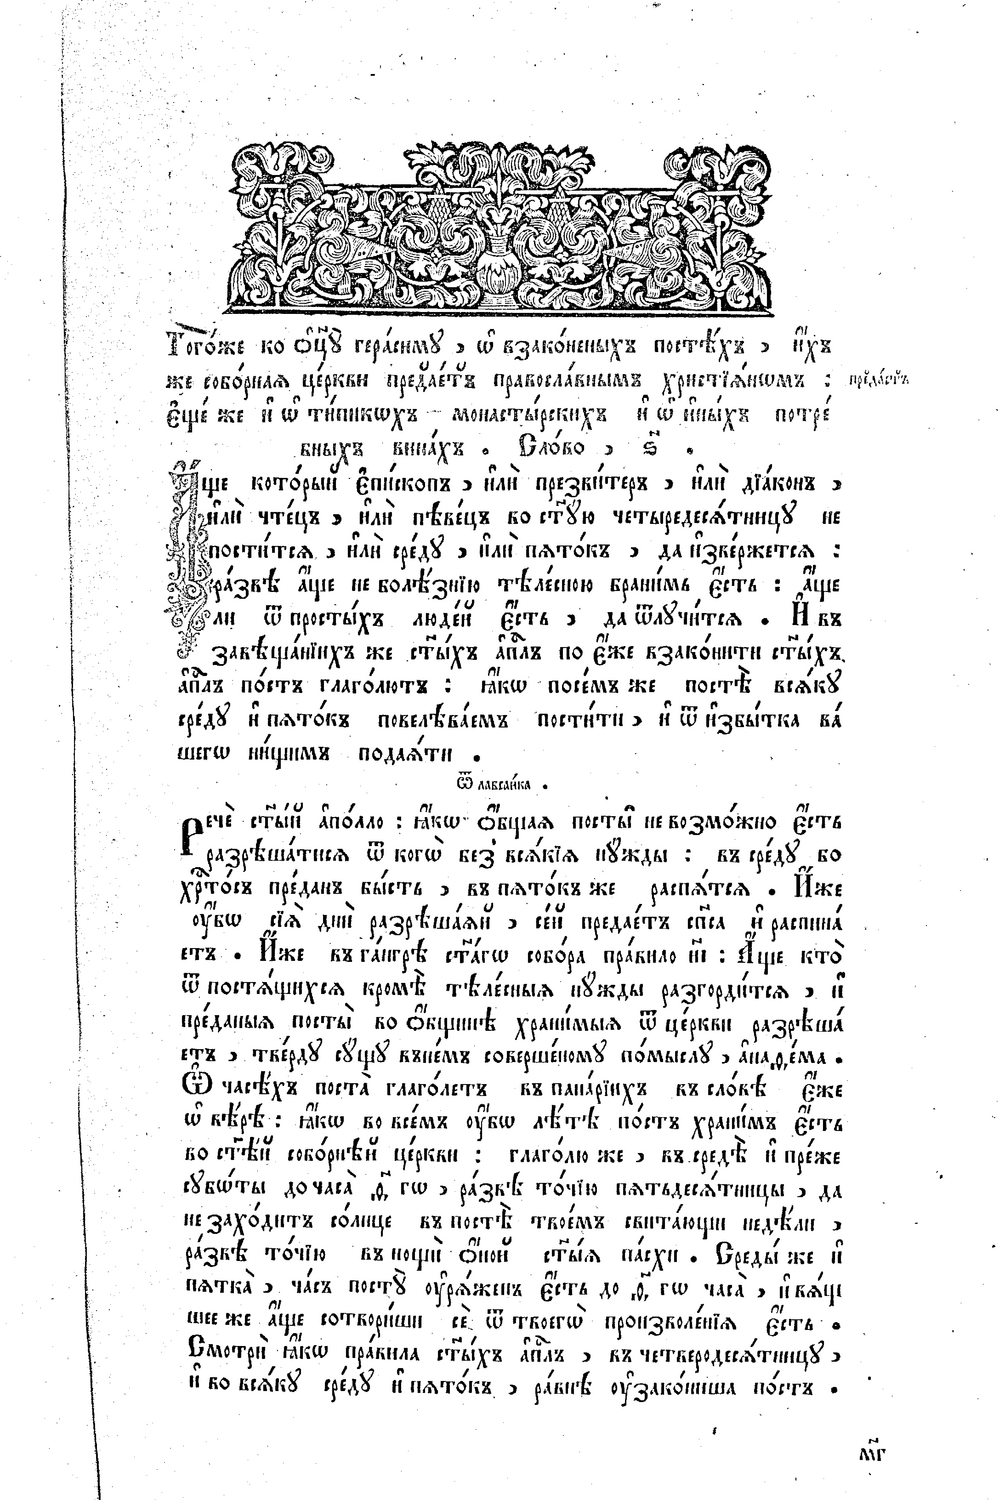 Тогѡ́же ко ѻ҆ц҃ꙋ̀ гера́симꙋ , ѡ҆ взако́неныхъ посте́хъ , и҆́хъ
же собо́рная це́ркви предае́тъ правосла́внымъ христїѧ́нѡмъ :
преда́стъ
є҆ще́ же и҆ ѡ҆ ти́пикѡхъ монасты́рскихъ и҆ ѡ҆ и҆ны́хъ потре́
бныхъ вина́хъ . Сло́во , ѕ҃ .
А҆́ще кото́рый є҆пи́скопъ , и҆лѝ презви́теръ , и҆лѝ дїа́конъ ,
и҆лѝ чте́цъ , и҆лѝ пѣве́цъ во ст҃ꙋ́ю четыредесѧ́тницꙋ не
пости́тсѧ , и҆лѝ сре́дꙋ , и҆лѝ пѧто́къ , да и҆зве́ржетсѧ :
ра́звѣ а҆́ще не болѣ́знїю тѣле́сною брани́мь є҆́сть : а҆́ще
ли ѿ просты́хъ люде́й є҆́сть , да ѿлꙋчи́тсѧ . И҆ въ
завѣща́нїихъ же ст҃ы́хъ а҆пⷭ҇лъ по є҆́же взакони́ти ст҃ы́хъ
а҆пⷭ҇лъ по́стъ глаго́лютъ : ꙗ҆́кѡ посе́мъ же постѣ̀ всѧ́кꙋ
сре́дꙋ и҆ пѧто́къ повелѣва́емъ пости́ти , и҆ ѿ и҆збы́тка ва́
шегѡ ни́щимъ подаѧ́ти .
Ѿ лавсаи́ка .
Речѐ ст҃ы́й а҆по́лло : ꙗ҆́кѡ ѻ҆́бщаѧ посты̀ не возмо́жно є҆́сть
разрѣша́тисѧ ѿ когѡ̀ без̾ всѧ́кїѧ нꙋ́жды : въ сре́дꙋ бо
хрⷭ҇то́съ пре́данъ бы́сть , въ пѧто́къ же распѧ́тсѧ . И҆́же
ᲂу҆́бѡ сїѧ̀ днѝ разрѣша́ѧй , се́й предае́тъ сп҃са и҆ распина́
етъ . И҆́же въ га́нгрѣ ст҃а́гѡ собо́ра пра́вило и҃і : А҆́ще кто̀
ѿ постѧ́щихсѧ кромѣ̀ тѣле́сныѧ нꙋ́жды разгорди́тсѧ , и҆
пре́даныѧ посты̀ во ѻ҆́бщинѣ храни́мыѧ ѿ це́ркви разрѣша́
етъ , тве́рдꙋ сꙋ́щꙋ вне́мъ соверше́номꙋ по́мыслꙋ , а҆на́ѳема .
Ѡ҆ часѣ́хъ поста̀ глаго́летъ въ пана́рїихъ въ сло́вѣ є҆́же
ѡ҆ вѣ́рѣ : ꙗ҆́кѡ во все́мъ ᲂу҆́бѡ лѣ́тѣ по́стъ храни́мъ є҆́сть
во ст҃ѣ́й собо́рнѣй це́ркви : глаго́лю же , въ средѣ̀ и҆ пре́же
сꙋбѡ́ты до часа̀ ѳ҃ гѡ , ра́звѣ то́чїю пѧтьдесѧ́тницы , да
не захо́дитъ со́лнце въ постѣ̀ твое́мъ свита́ющи недѣ́ли ,
ра́звѣ то́чїю въ нощѝ ѻ҆́ной ст҃ы́ѧ па́схи . Среды̀ же и҆
пѧтка̀ , ча́съ постꙋ̀ ᲂу҆рѧ́женъ є҆́сть до ѳ҃ гѡ часа̀ , и҆ вѧ́щ
шее же а҆́ще сотвори́ши сѐ ѿ твоегѡ̀ произволе́нїѧ є҆́сть .
Смотрѝ ꙗ҆́кѡ пра́вила ст҃ы́хъ а҆пⷭ҇лъ , въ четверодесѧ́тницꙋ ,
и҆ во всѧ́кꙋ сре́дꙋ и҆ пѧто́къ , ра́внѣ ᲂу҆зако́ниша по́стъ .
м҃г